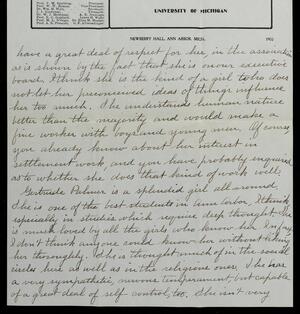 UNIVERSITY OF MICHIGAN
NEWBERRY HALL, ANN ARBOR, MICH. 190
have a great deal of respect for her, in the association
as is shown by the fact that she is on our executive
board. I think she is the kind of a girl who does
not let her preconceived ideas of things influence
her too much. She understands human nature
better than the majority and would make a
fine worker with boys and young men. Of course
you already know about her interest in
settlement work and you have probably inquired
as to whether she does that kind of work well.
Gertrude Palmer is a splendid girl all around.
She is one of the best students in Ann Arbor, I think
especially in studies which require deep thought. She
is much loved by all the girls who know her. In fact
I don't think anyone could know her without liking
her thoroughly. She is thought much of in the social
circles here as well as in the religious ones. She has
a very sympathetic, nervous temperament, but capable
of a great deal of self control, too. She isn't very